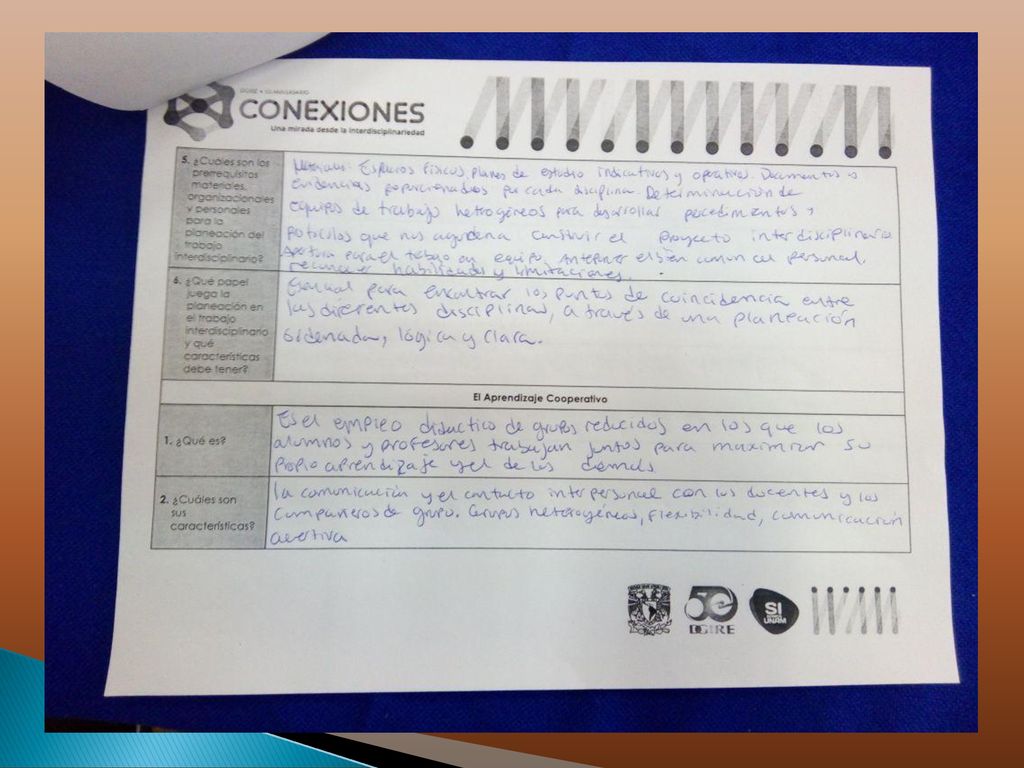 DGIRE • 50 ANIVERSARIO
CONEXIONES
Una mirada desde la interdisciplinariedad
5. ¿Cuáles son los
prerrequisitos
materiales,
organizacionales
y personales
para la
planeación del
trabajo
interdisciplinario?
Materiales. Espacios físicos, planes de estudio indicativos y operativos. Documentos o
evidencias proporcionados por cada disciplina. Determinación de
equipos de trabajo hetrogéneos para desarrollar
que nos construir el proyecto interdisciplinario
Apertura para el en equipo. Anteponer el bien común al personal.
reconocer habilidades y limitaciones.
6. ¿Qué papel
juega la
planeación en
el trabajo
interdisciplinario
y qué
características
debe tener?
para encontrar los puntos de coincidencia entre
las diferentes disciplinas, a través de una planeación
ordenada, lógica y clara.
El Aprendizaje Cooperativo
1. ¿Qué es?
Es el empleo didáctico de grupos reducidos en los que los
alumnos y profesores trabajan juntos para maximizar su
propio aprendizaje y el de los demás
2. ¿Cuáles son
sus
características?
la comunicación y el contacto interpersonal con los docentes y los
compañeros de grupo. Grupos heterogéneos, flexibilidad, comunicación
asertiva
50
DGIRE
SI
UNAM